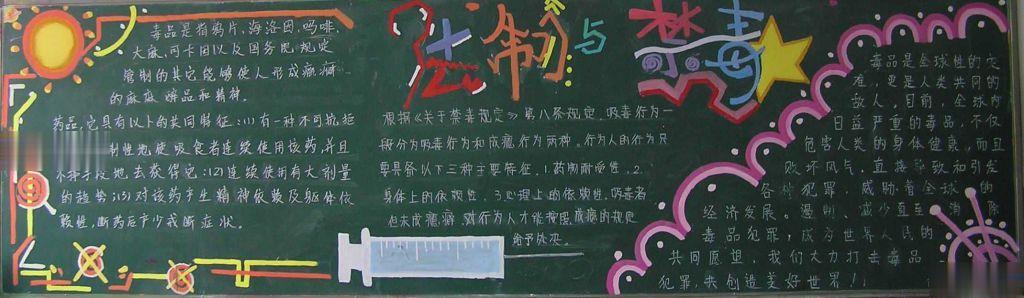 法制与禁毒
毒品是指鸦片、海洛因、吗啡、
大麻、可卡因以及国务院规定
管制的其它能够使人形成瘾癖
的麻麻醉品和精神。
药品,它具有以下的共同特征:(1)有一种不可抗拒
制性地使吸食者连续使用该药,并且
不择手段地去获得它;(2)连续使用有大剂量
的趋势;(3)对该药产生精神依赖及躯体依
赖性,断药后产少戒断症状。
根据《关于禁毒规定》第八条规定,吸毒行为一
般分为吸毒行为和成瘾行为两种。行为人的行为只
要具备以下三种主要特征,1.药物耐受性,2.
身体上的依赖性,3.心理上的依赖性。吸毒者
但未成瘾癖,对行为人才能按照成瘾的规定
给予处决。
毒品是全球性的灾
难,更是人类共同的
敌人。目前,全球内
日益严重的毒品,不仅
危害人类的身体健康,而且
败坏风气,直接导致和引发
各种犯罪,威胁着全球的
经济发展。遏制、减少直至消除
毒品犯罪,成为世界人民的
共同愿望,我们大力打击毒品
犯罪,共创造美好世界!